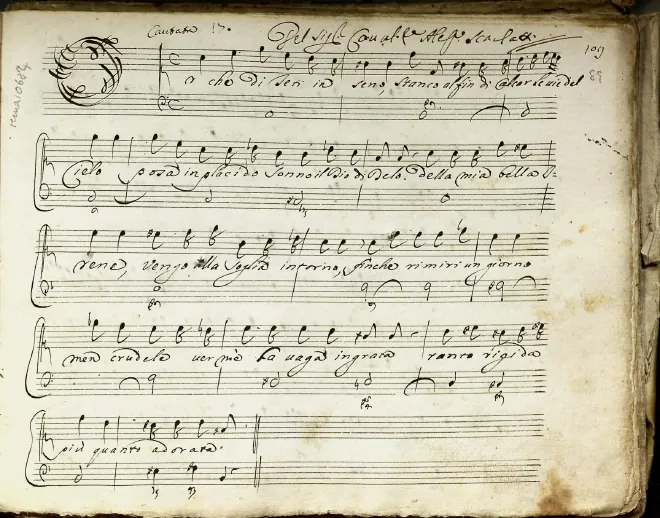 Cantata 17. Del Sigr. Cavalre Alessо Scarlatti 109
89
Or che di Teti in seno, stanco al fin di calcar le vie del
Cielo posa in placido sonno il Dio di Delo. della mia bella I-
rene, vengo alla soglia intorno, finche rimiri un giorno
men crudele ver me la vaga ingrata tanto rigida
più quanto adorata.